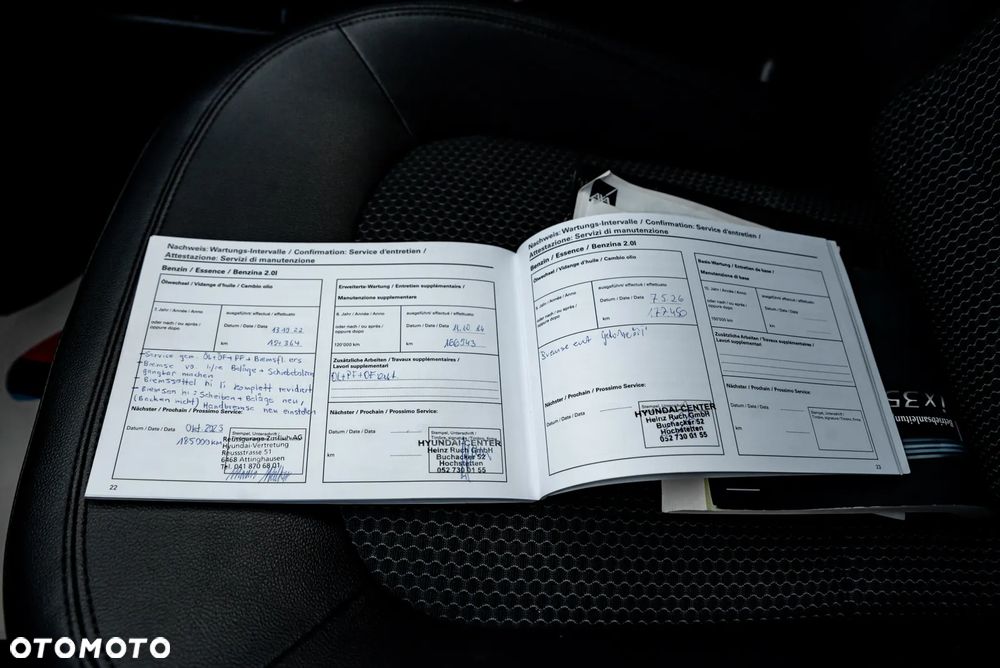 Nachweis: Wartungs-Intervalle / Confirmation: Service d'entretien /
Attestazione: Servizi di manutenzione
Benzin / Essence / Benzina 2.0l
Ölwechsel / Vidange d'huile / Cambio olio
7. Jahr / Année / Anno
oder nach / ou après /
oppure dopo
ausgeführt / effectué / effettuato
Datum / Date / Data
13.10.22
km
Service gem.
ÖL+ÖF+PF+Bremsfl. ers
Bremse vo. li/re Beläge + Schiebebolzen
gangbar machen
Bremssattel hi li komplett revidiert
Bremsen hi: Scheiben + Beläge neu,
(Backen nicht) Handbremse neu einstellen
Nächster / Prochain / Prossimo Service:
Datum / Date / Data
Okt. 2023
185000 km
Stempel, Unterschrift /
Hyundai-Vertretung
Reussstrasse 51
6468 Attinghausen
Tel. 041 870 68 01
22
Erweiterte-Wartung / Entretien supplémentaire /
Manutenzione supplementare
8. Jahr / Année / Anno
oder nach / ou après /
oppure dopo
120'000 km
ausgeführt / effectué / effettuato
Datum / Date / Data
km
Zusätzliche Arbeiten / Travaux supplémentaires /
Lavori supplementari
Nächster / Prochain / Prossimo Service:
Datum / Date / Data
km
Stempel, Unterschrift /
HYUNDAI-CENTER
Heinz Ruch GmbH
Buchacker 52
Hochstetten
052 730 01 55
Nachweis: Wartungs-Intervalle / Confirmation: Service d'entretien /
Attestazione: Servizi di manutenzione
Benzin / Essence / Benzina 2.0l
Ölwechsel / Vidange d'huile / Cambio olio
9. Jahr / Année / Anno
oder nach / ou après /
oppure dopo
ausgeführt / effectué / effettuato
Datum / Date / Data
km
177'450
Nächster / Prochain / Prossimo Service:
Datum / Date / Data
km
HYUNDAI-CENTER
Heinz Ruch GmbH
Buchacker 52
Hochstetten
052 730 01 55
Basis-Wartung / Entretien de base /
Manutenzione di base
10. Jahr / Année / Anno
oder nach / ou après /
oppure dopo
150'000 km
ausgeführt / effectué / effettuato
Datum / Date / Data
km
Zusätzliche Arbeiten / Travaux supplémentaires /
Lavori supplementari
Nächster / Prochain / Prossimo Service:
Datum / Date / Data
km
Stempel, Unterschrift /
23
Betriebsanleitung
iX35
OTOMOTO